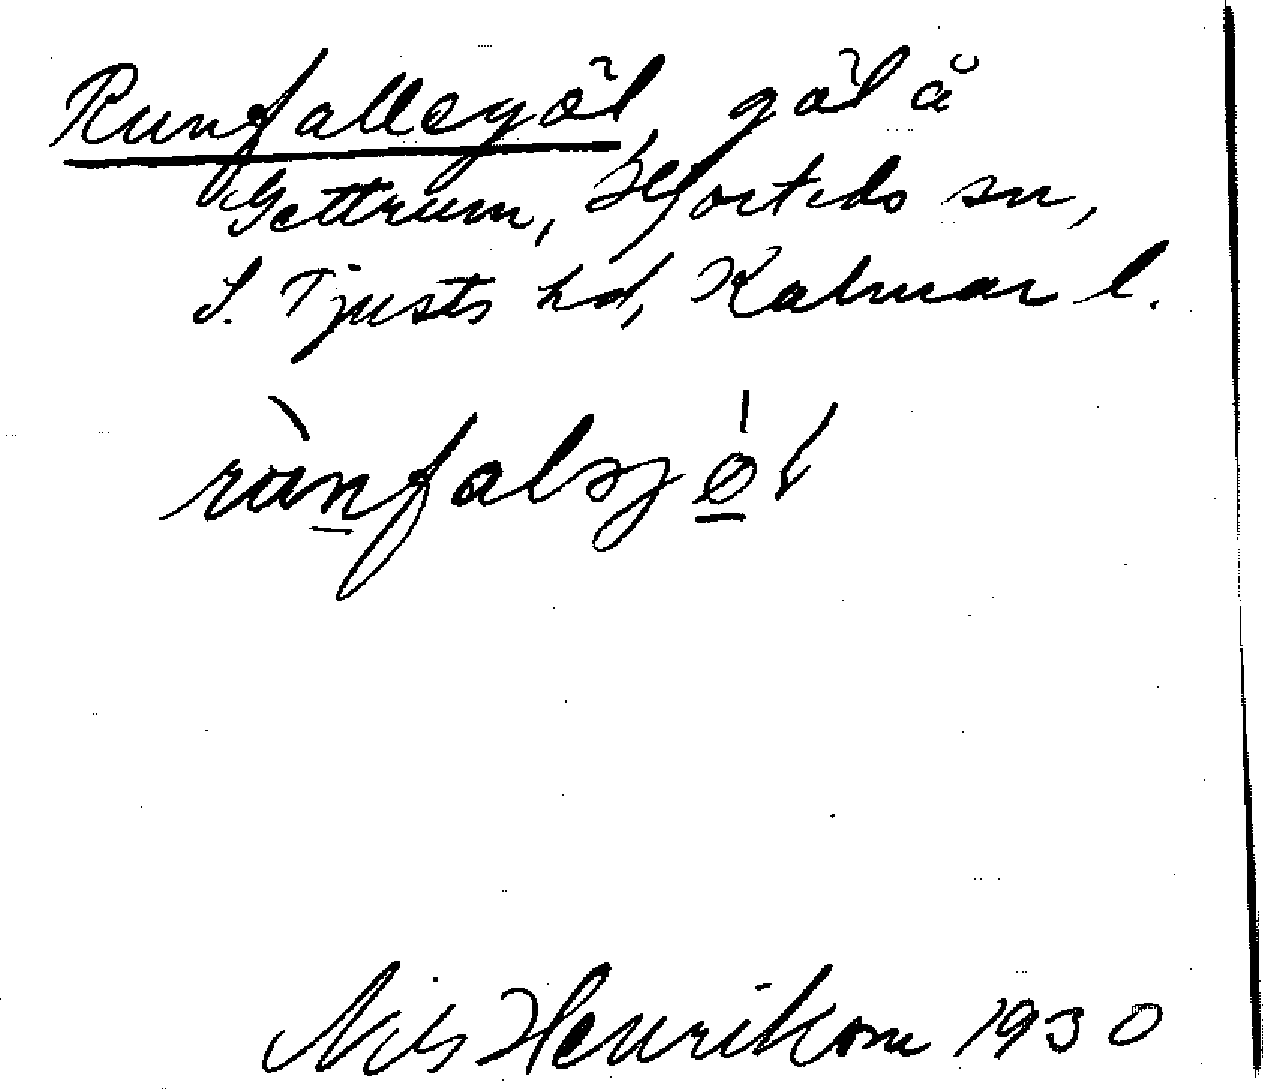 Runfallegöl, göl å
Gettrum, Hjorteds sn,
S. Tjusts hd, Kalmar l.
Nils Henrikson 1930